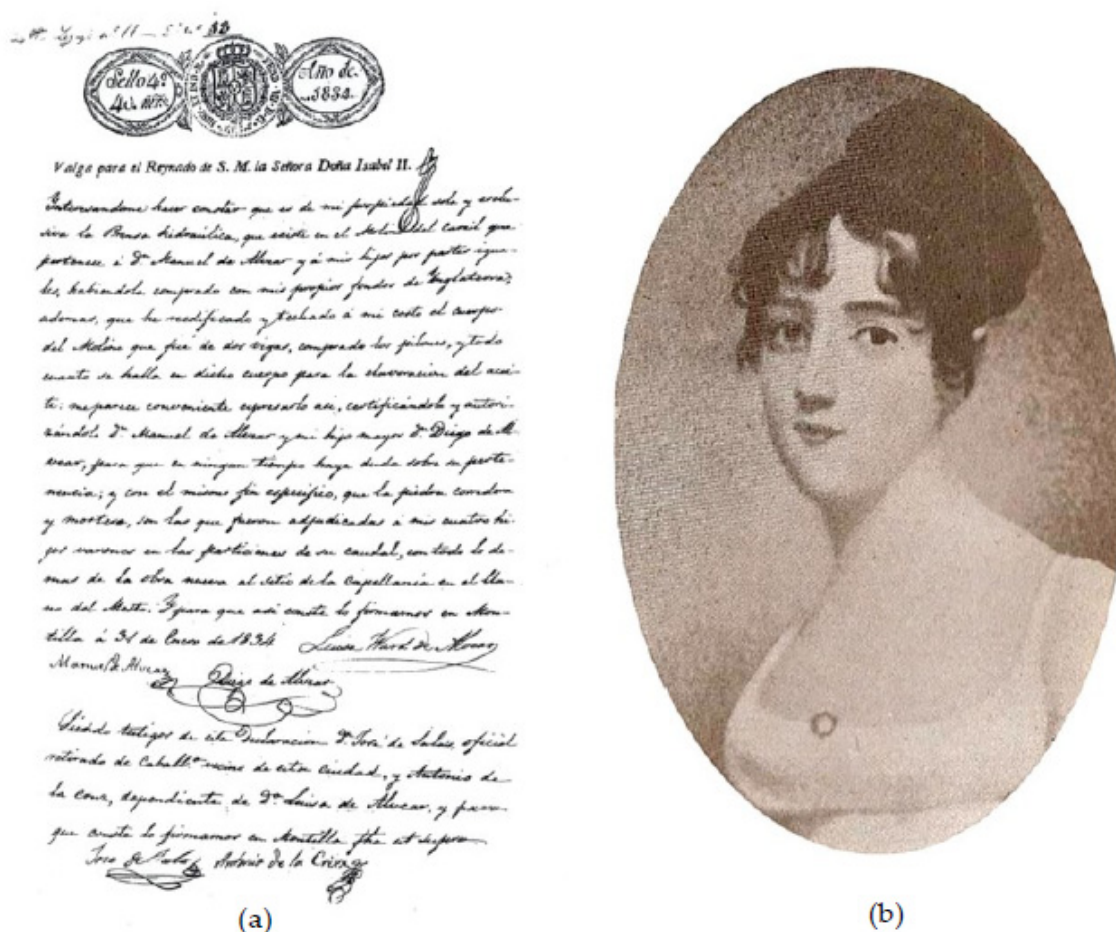 Sello 4º
40 mrs.
Año de
1834.
Valga para el Reynado de S. M. la Señora Doña Isabel II.
Interesandome hacer constar que es de mi propiedad sola y esclu-
siva la Prensa hidraúlica, que existe en el Molino del carril que
pertenece á Dn. Manuel de Alvear y á mis hijos por partes igua-
les, habiendola comprado con mis propios fondos de Ynglaterra;
ademas, que he reedificado y techado á mi costa el cuerpo
del Molino que fué de dos vigas, comprado los pilones, y todo
cuanto se halla en dicho cuerpo para la elavoracion del acei-
te; me parece conveniente espresarlo asi, certificándolo y autori-
zándolo Dn. Manuel de Alvear y mi hijo mayor Dn. Diego de Al-
vear, para que en ningun tiempo haya duda sobre su perte-
nencia; y con el mismo fin especifico, que la piedra corredora
y mortera, son las que fueron adjudicadas á mis cuatro hi-
jos varones en las particiones de su caudal, con todo lo de-
mas de la obra nueva al sitio de la Capellanía en el Lla-
no del Mesto. Y para que asi conste lo firmamos en Mon-
tilla á 31 de Enero de 1834 Luisa Ward de Alvear
Manuel de Alvear
Diego de Alvear
Siendo testigos de esta Declaracion Dn. José de Salas, oficial
retirado de Caballa. vecino de esta ciudad, y Antonio de
la Cruz, dependiente de Da. Luisa de Alvear, y para
que conste lo firmamos en Montilla fha ut supra
José de Salas Antonio de la Cruz
(a)
(b)